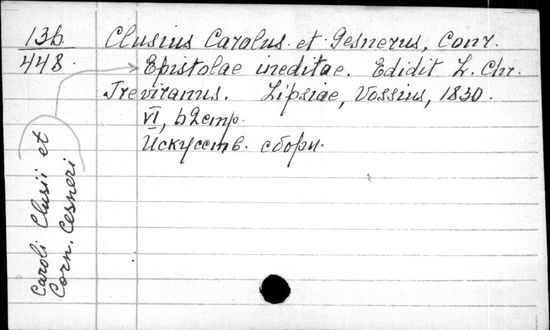 13b
448.
Clusius Carolus et Gesnerus, Conr.
Epistolae ineditae. Edidit L. Chr.
Treviranus. Lipsiae, Vossius, 1830.
VI, 62 стр.
Искусств. сборн.
Caroli Clusii et
Corn. Cesneri